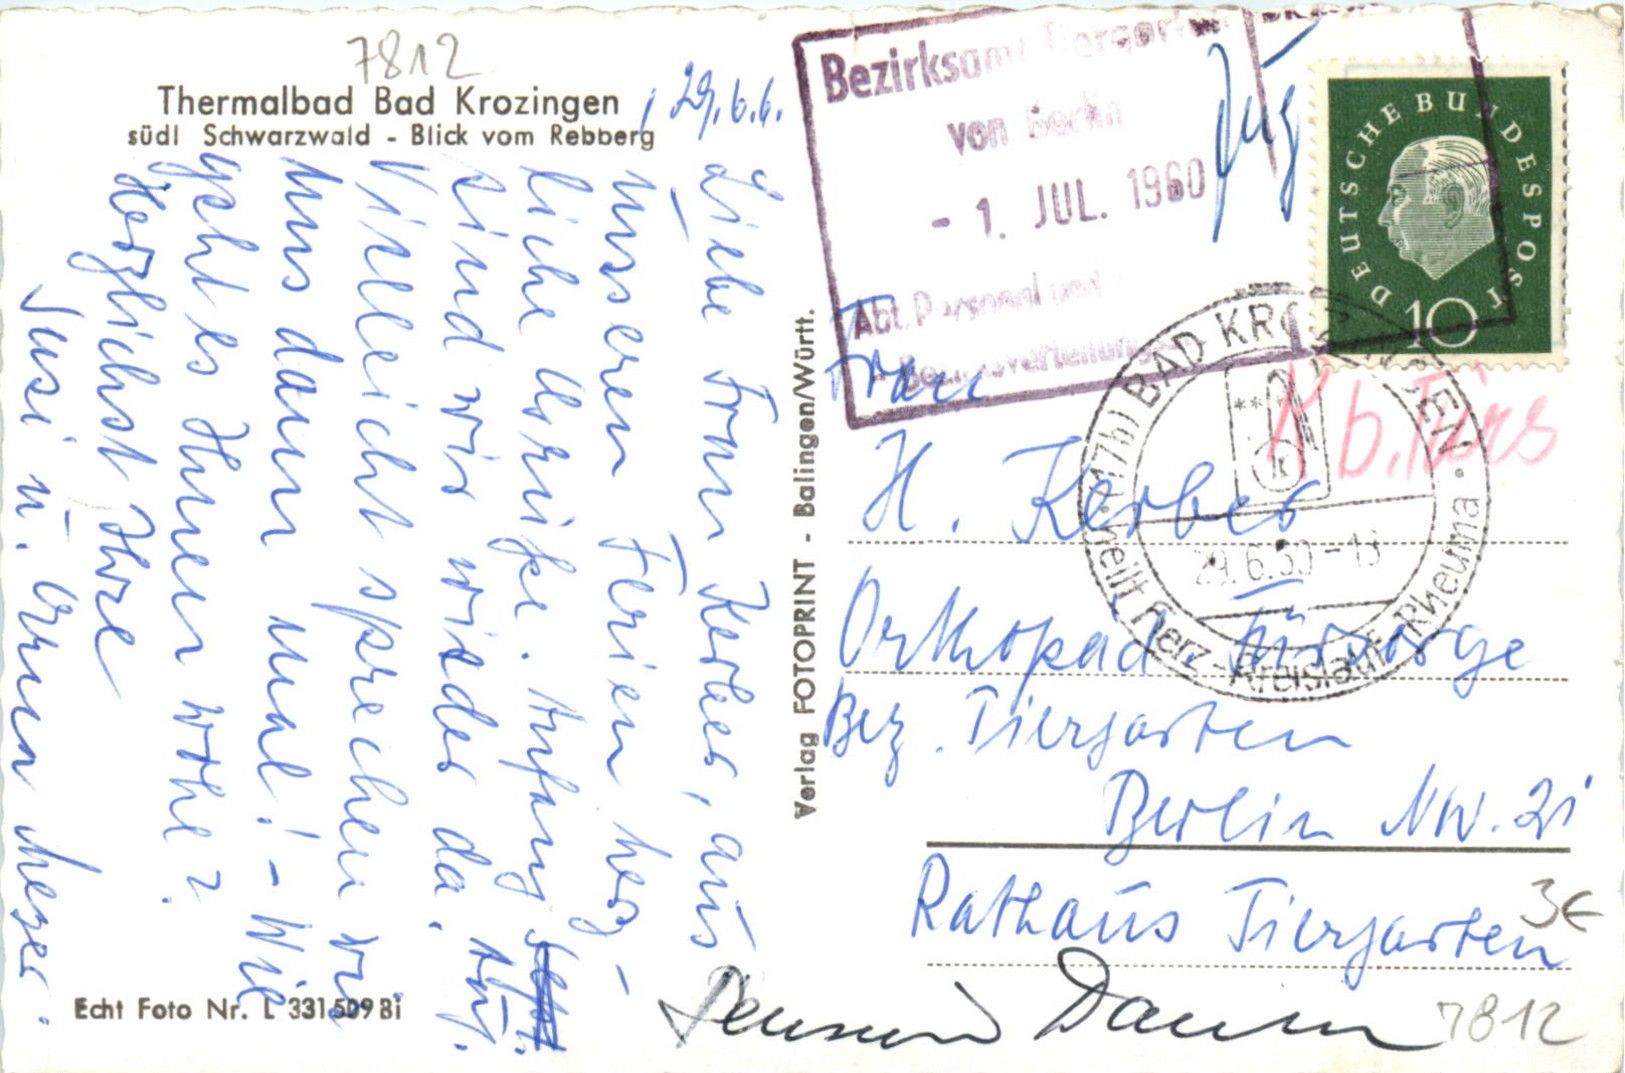 7812
Thermalbad Bad Krozingen
südl Schwarzwald - Blick vom Rebberg
, 29.6.6.
Liebe Frau Kerber, aus
unseren Ferien herz-
liche Grüße. Anfang
Aug.
sind wir wieder da.
Vielleicht sprechen wir
uns dann mal! - Wie
geht es Ihnen
Herzlichst Ihre
Susi u.
Echt Foto Nr. L 331509 Bi
Verlag FOTOPRINT - Balingen/Württ.
Bezirksamt Tiergarten
von Berlin
- 1. JUL. 1960
Abt. Personal und
DEUTSCHE BUNDESPOST
10
(17b) BAD KROZINGEN
heilt Herz-Kreislauf-Rheuma
29.6.60-13
Frau
H. Kerber
Orthopäd. Fürsorge
Bez. Tiergarten
Berlin NW. 21
Rathaus Tiergarten
3€
Pension Daum
7812